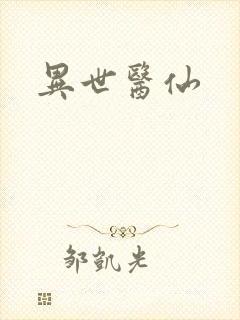 異世醫仙
邹凱光